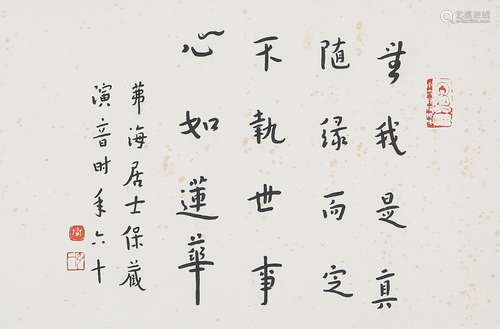 無我是真
随缘而定
不執世事
心如蓮華
茀海居士保藏
演音时年六十